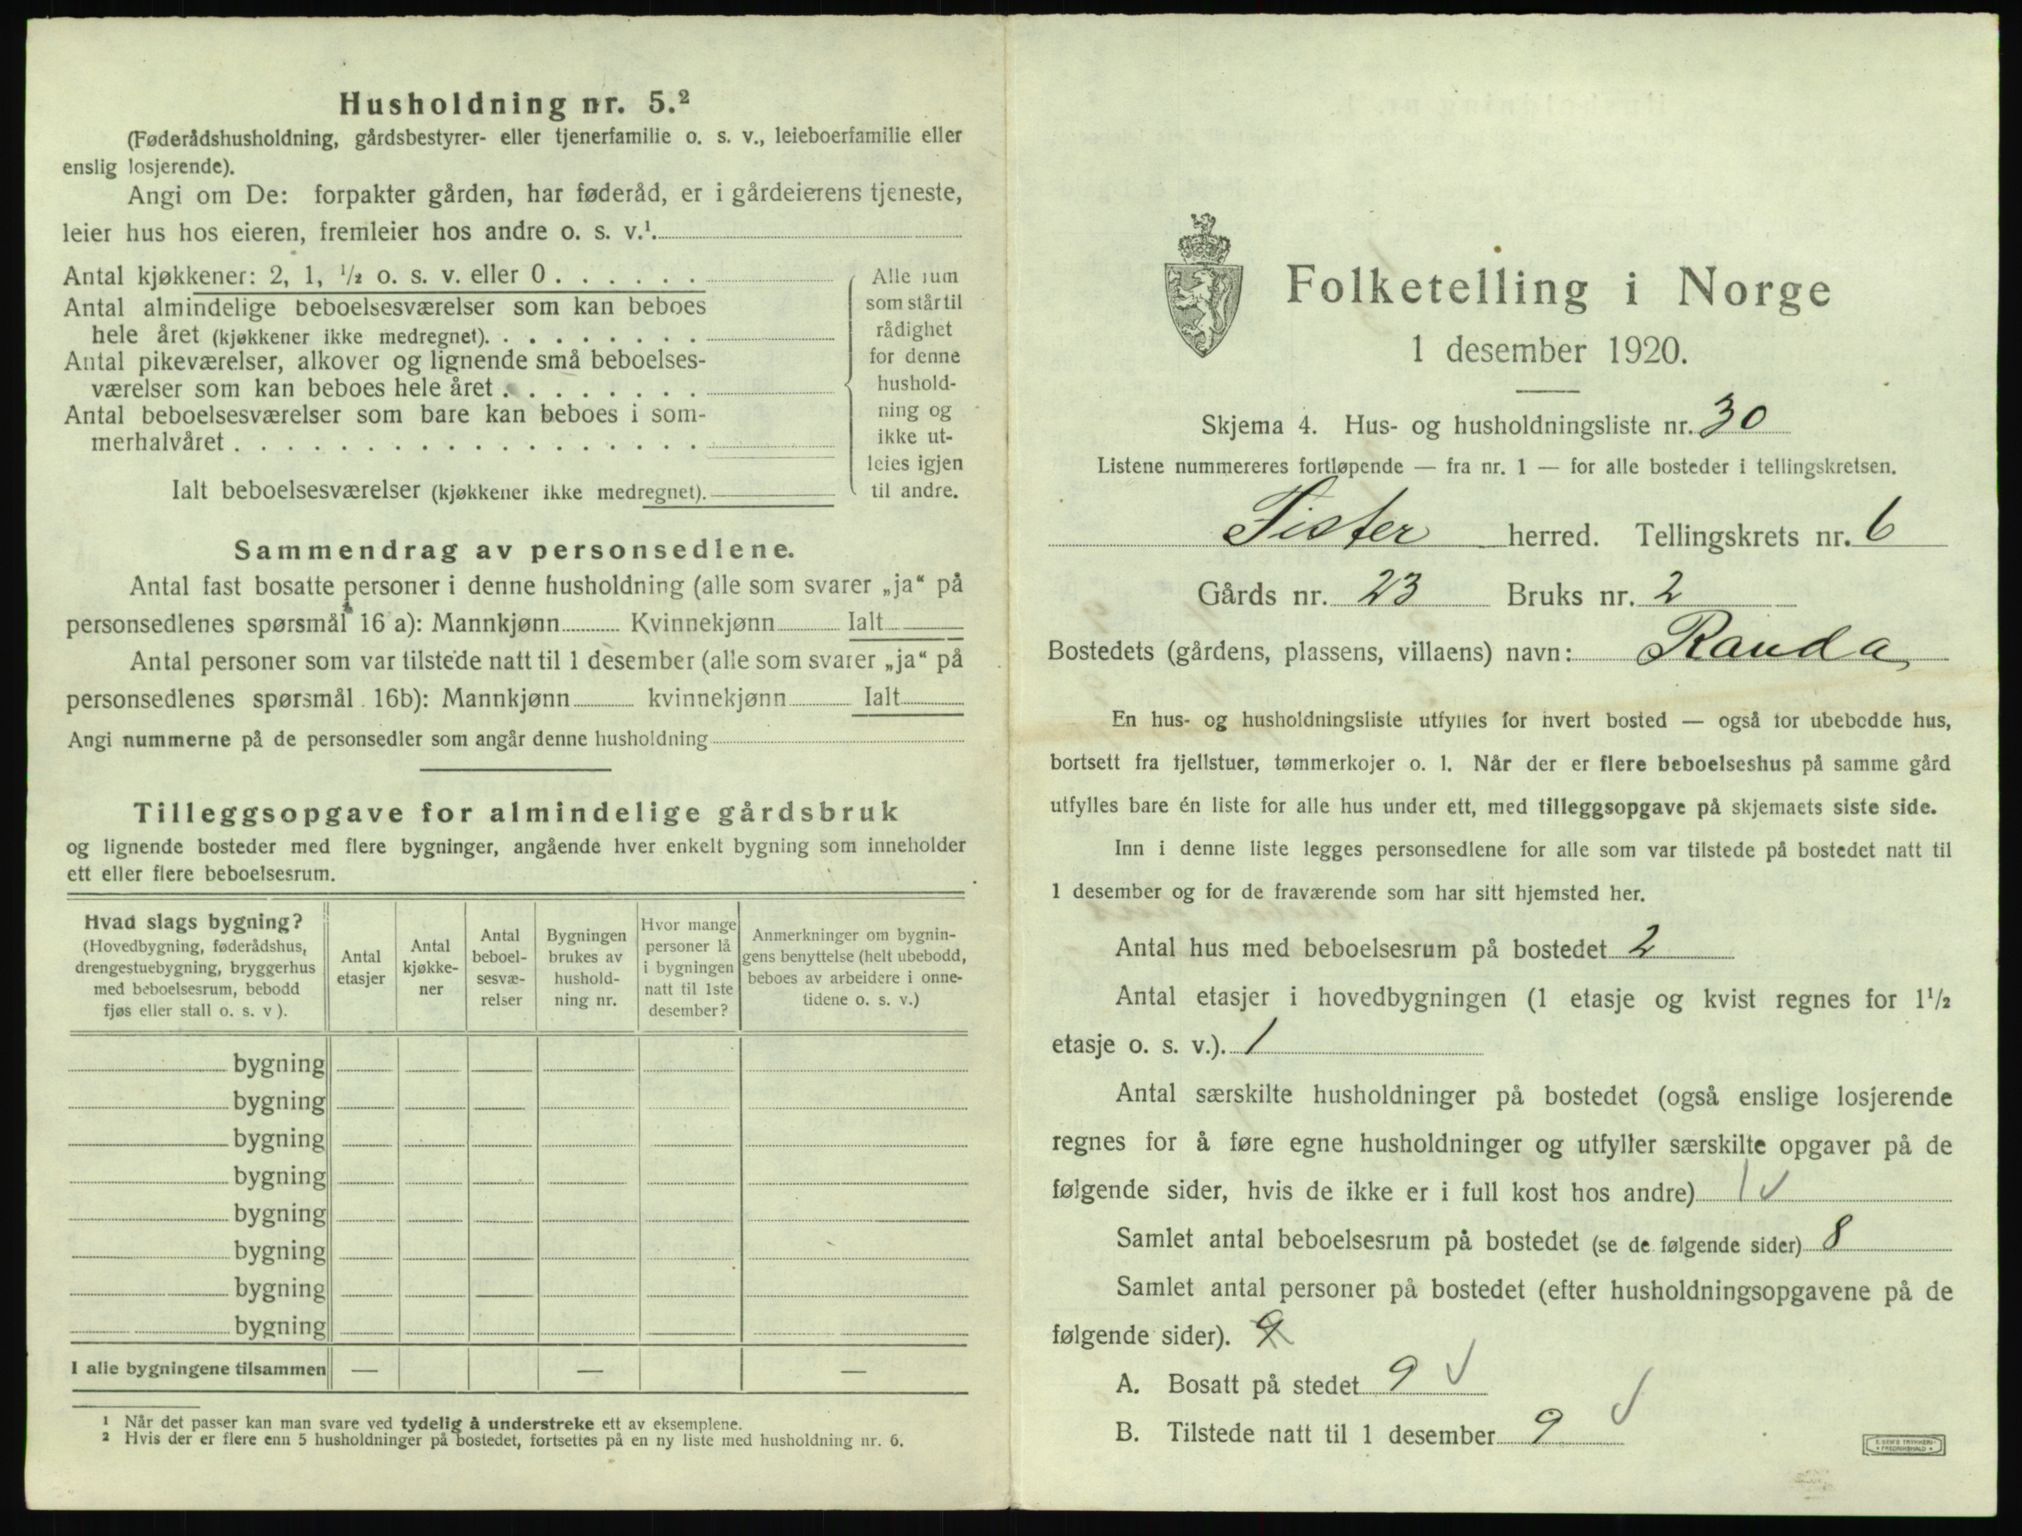 Husholdning nr. 5.²
(Føderådshusholdning, gårdsbestyrer- eller tjenerfamilie o. s. v., leieboerfamilie eller
enslig losjerende).
Angi om De: forpakter gården, har føderåd, er i gårdeierens tjeneste,
leier hus hos eieren, fremleier hos andre o. s. v.¹
Antal kjøkkener: 2, 1, ½ o. s. v. eller 0 . . . . . .
Antal almindelige beboelsesværelser som kan beboes
hele året (kjøkkener ikke medregnet). . . . . . . . .
Antal pikeværelser, alkover og lignende små beboelses-
værelser som kan beboes hele året . . . . . . . .
Antal beboelsesværelser som bare kan beboes i som-
merhalvåret . . . . . . . . . . . . . . . . . .
Ialt beboelsesværelser (kjøkkener ikke medregnet).
Alle rum
som står til
rådighet
for denne
hushold-
ning og
ikke ut-
leies igjen
til andre.
Sammendrag av personsedlene.
Antal fast bosatte personer i denne husholdning (alle som svarer „ja“ på
personsedlenes spørsmål 16 a): Mannkjønn Kvinnekjønn Ialt
Antal personer som var tilstede natt til 1 desember (alle som svarer „ja“ på
personsedlenes spørsmål 16b): Mannkjønn kvinnekjønn Ialt
Angi nummerne på de personsedler som angår denne husholdning
Tilleggsopgave for almindelige gårdsbruk
og lignende bosteder med flere bygninger, angående hver enkelt bygning som inneholder
ett eller flere beboelsesrum.
Hvad slags bygning?
(Hovedbygning, føderådshus,
drengestuebygning, bryggerhus
med beboelsesrum, bebodd
fjøs eller stall o. s. v ).
Antal
etasjer
Antal
kjøkke-
ner
Antal
beboel-
sesvæ-
relser
Bygningen
brukes av
hushold-
ning nr.
Hvor mange
personer lå
i bygningen
natt til 1ste
desember?
Anmerkninger om bygnin-
gens benyttelse (helt ubebodd,
beboes av arbeidere i onne-
tidene o. s. v.)
bygning
bygning
bygning
bygning
bygning
bygning
bygning
bygning
I alle bygningene tilsammen — — —
¹ Når det passer kan man svare ved tydelig å understreke ett av eksemplene.
² Hvis der er flere enn 5 husholdninger på bostedet, fortsettes på en ny liste med husholdning nr. 6.
Folketelling i Norge
1 desember 1920.
Skjema 4. Hus- og husholdningsliste nr. 30
Listene nummereres fortløpende — fra nr. 1 — for alle bosteder i tellingskretsen.
Lister herred. Tellingskrets nr. 6
Gårds nr. 23 Bruks nr. 2
Bostedets (gårdens, plassens, villaens) navn: Randa
En hus- og husholdningsliste utfylles for hvert bosted — også for ubebodde hus,
bortsett fra fjellstuer, tømmerkojer o. l. Når der er flere beboelseshus på samme gård
utfylles bare én liste for alle hus under ett, med tilleggsopgave på skjemaets siste side.
Inn i denne liste legges personsedlene for alle som var tilstede på bostedet natt til
1 desember og for de fraværende som har sitt hjemsted her.
Antal hus med beboelsesrum på bostedet 2
Antal etasjer i hovedbygningen (1 etasje og kvist regnes for 1½
etasje o. s. v.). 1
Antal særskilte husholdninger på bostedet (også enslige losjerende
regnes for å føre egne husholdninger og utfyller særskilte opgaver på de
følgende sider, hvis de ikke er i full kost hos andre) 1 ✓
Samlet antal beboelsesrum på bostedet (se de følgende sider) 8
Samlet antal personer på bostedet (efter husholdningsopgavene på de
følgende sider). 9
A. Bosatt på stedet 9 ✓
B. Tilstede natt til 1 desember 9 ✓